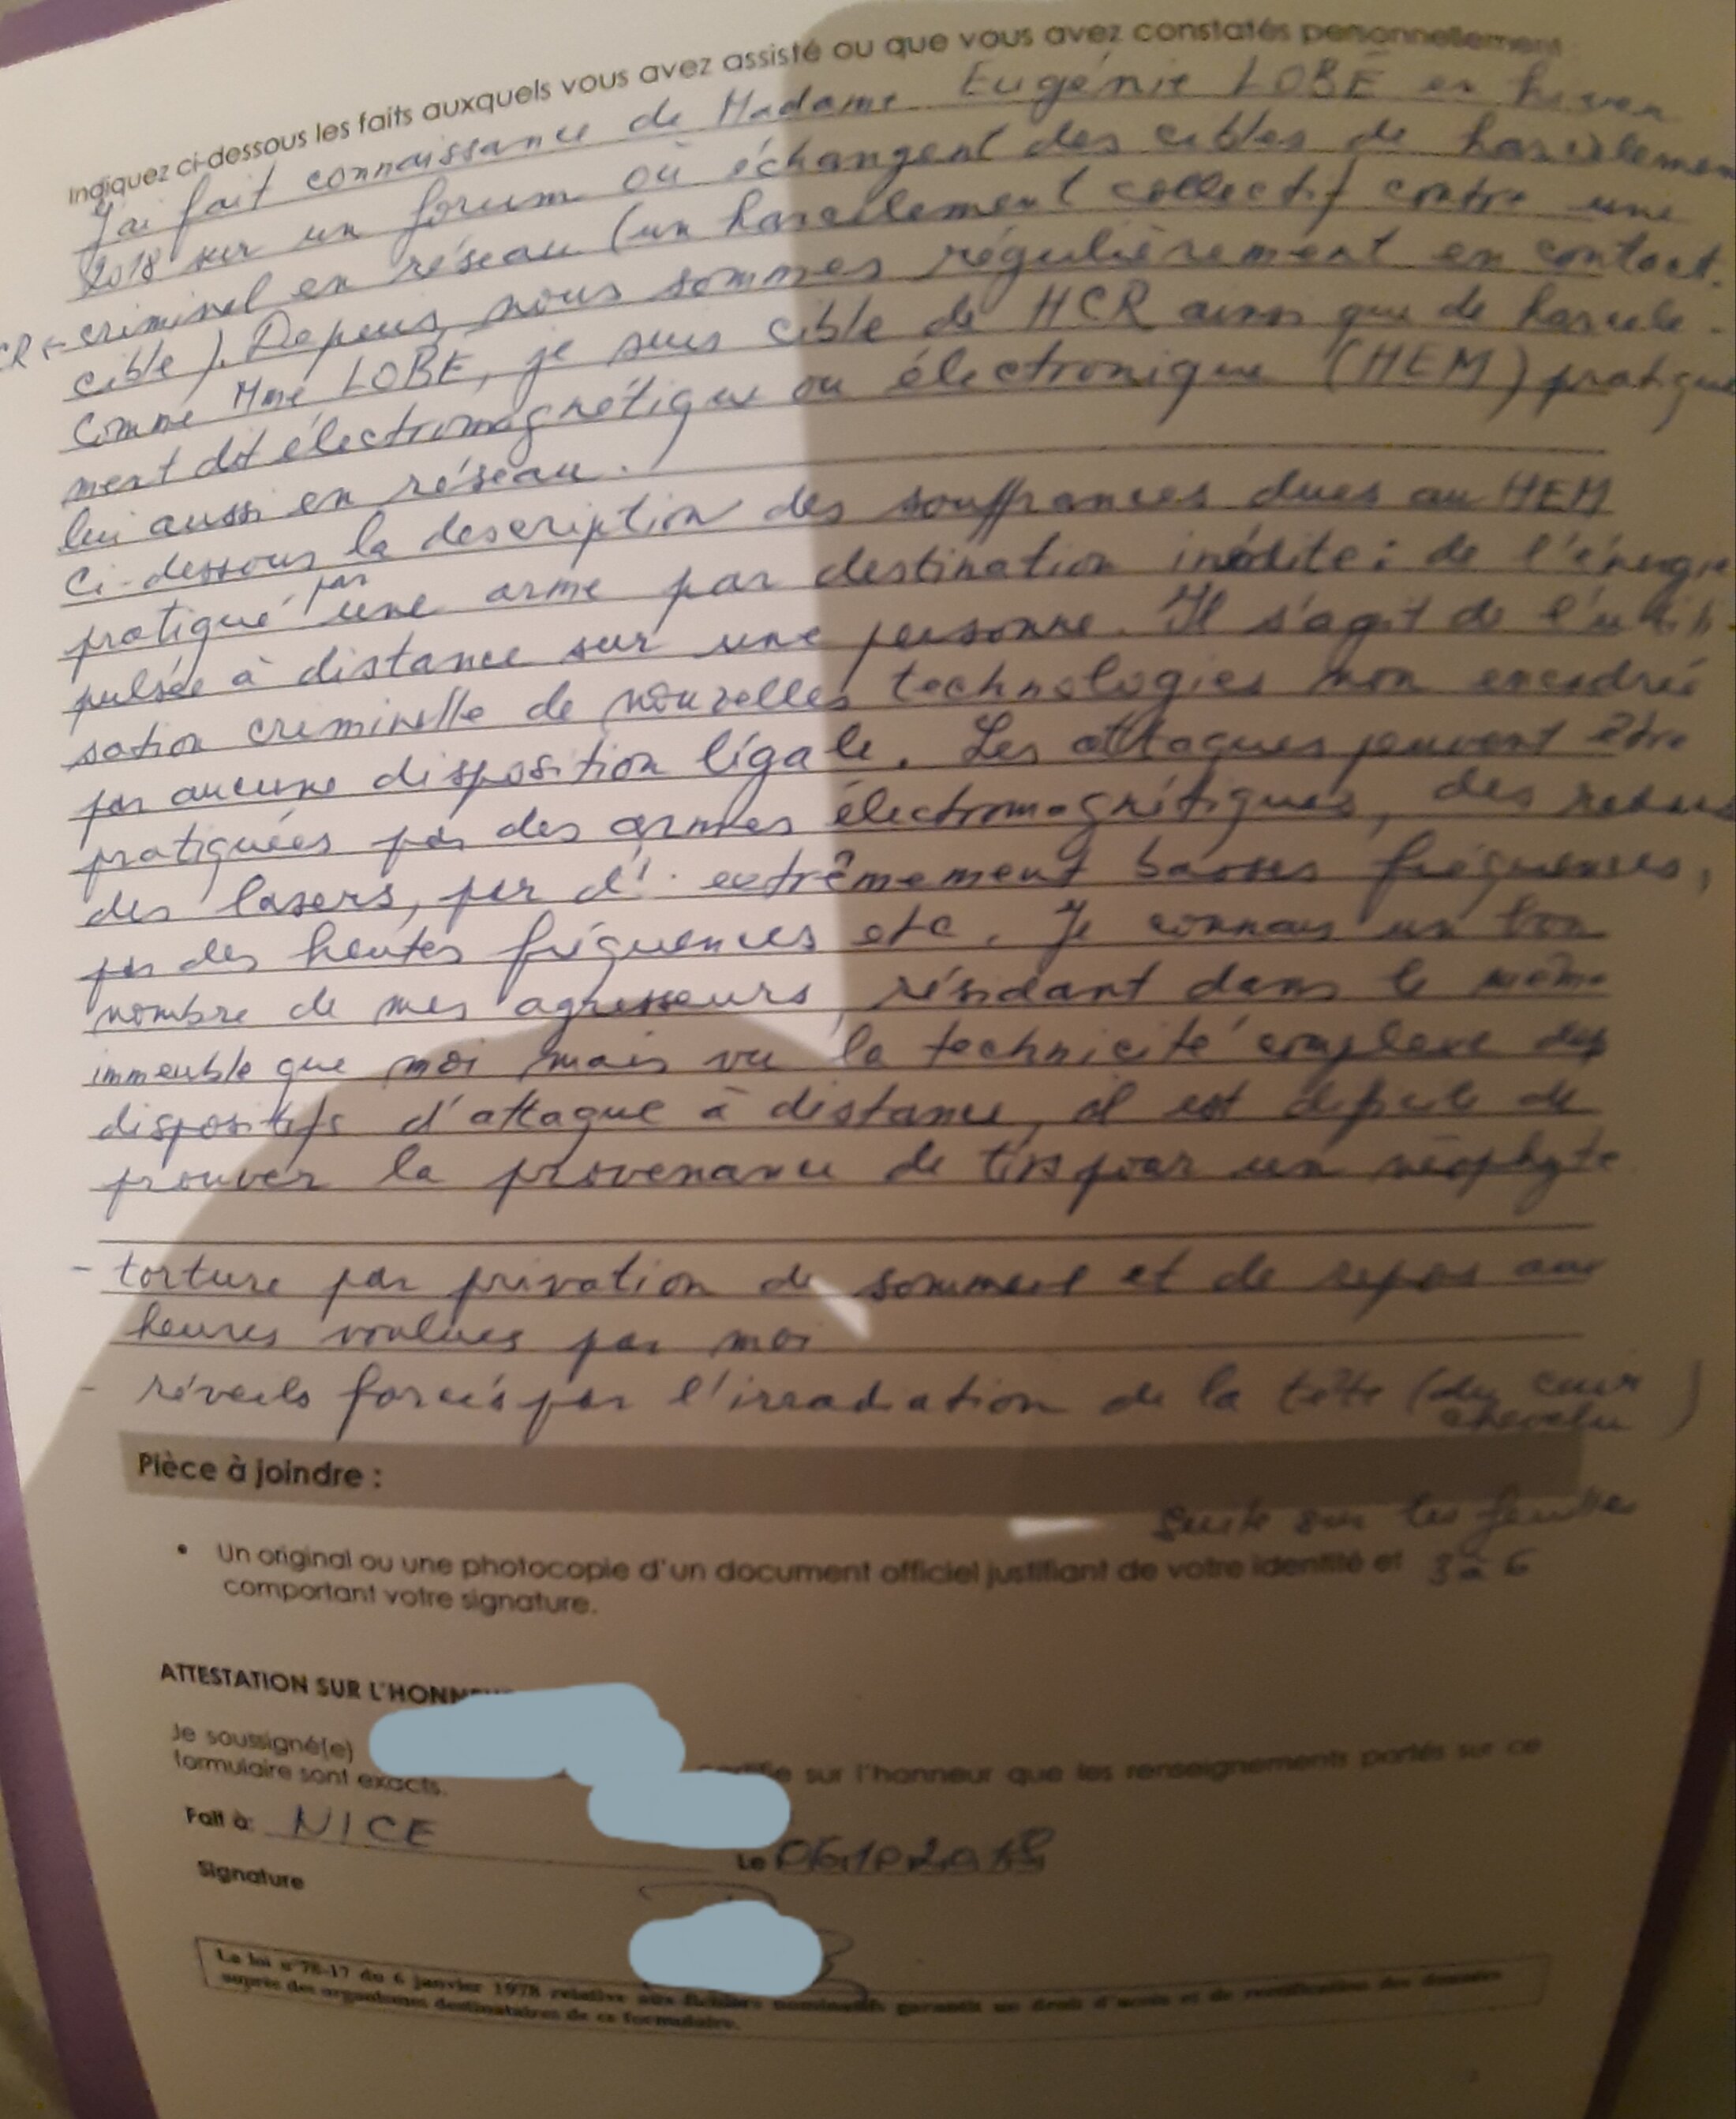 Indiquez ci-dessous les faits auxquels vous avez assisté ou que vous avez constatés personnellement
J'ai fait connaissance de Madame Eugénie LOBÉ en hiver
2018 sur un forum où échangent des cibles de harcèlemen
CR ← criminel en réseau (un harcèlement collectif contre une
cible). Depuis, nous sommes régulièrement en contact.
Comme Mme LOBÉ, je suis cible de HCR ainsi que de harcèle-
ment dit électromagnétique ou électronique (HEM) pratiqu
lui aussi en réseau.
Ci-dessous la description des souffrances dues au HEM
pratiqué par une arme par destination inédite : de l'énergie
pulsée à distance sur une personne. Il s'agit de l'utili-
sation criminelle de nouvelles technologies non encadrée
par aucune disposition légale. Les attaques peuvent être
pratiquées par des armes électromagnétiques, des
des lasers, par d' extrêmement basses fréquences,
par des hautes fréquences etc. Je connais un bon
nombre de mes agresseurs, résidant dans le même
immeuble que moi mais vu la technicité complexe des
dispositifs d'attaque à distance, il est difficile de
prouver la provenance de tirs pour un néophyte
- torture par privation de sommeil et de repos aux
heures voulues par moi
- réveils forcés par l'irradiation de la tête (du cuir chevelu)
Pièce à joindre :
Suite sur les feuilles
3 à 6
• Un original ou une photocopie d'un document officiel justifiant de votre identité et
comportant votre signature.
ATTESTATION SUR L'HONNEUR
Je soussigné(e) certifie sur l'honneur que les renseignements portés sur ce
formulaire sont exacts.
Fait à: NICE
Le
Signature
La loi n°78-17 du 6 janvier 1978 relative aux fichiers nominatifs garantit un droit d'accès et de rectification des données
auprès des organismes destinataires de ce formulaire.